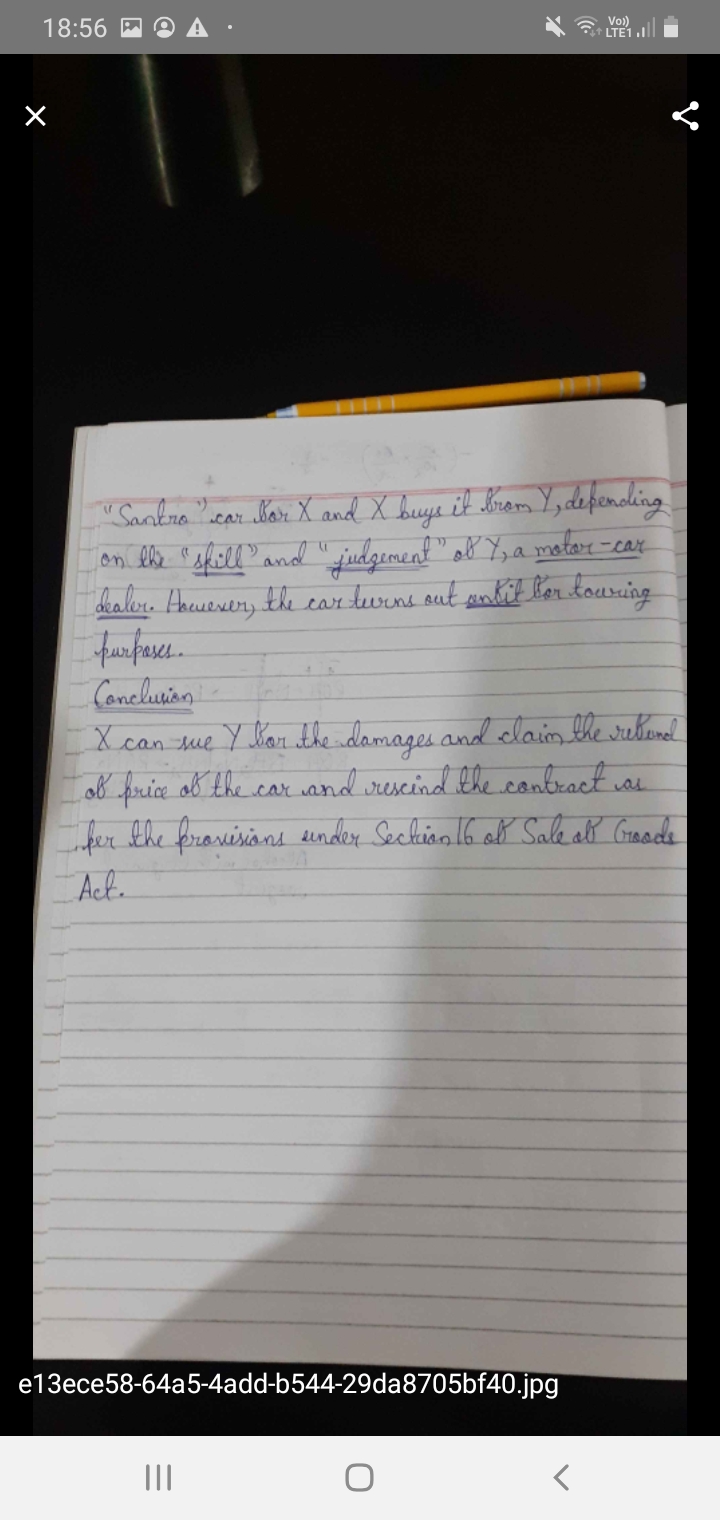 18:56
Vo))
LTE1
"Santro" car for X and X buys it from Y, depending
on the "skill" and "judgement" of Y, a motor-car
dealer. However, the car turns out unfit for touring
purposes.
Conclusion
X can sue Y for the damages and claim the refund
of price of the car and rescind the contract as
per the provisions under Section 16 of Sale of Goods
Act.
e13ece58-64a5-4add-b544-29da8705bf40.jpg